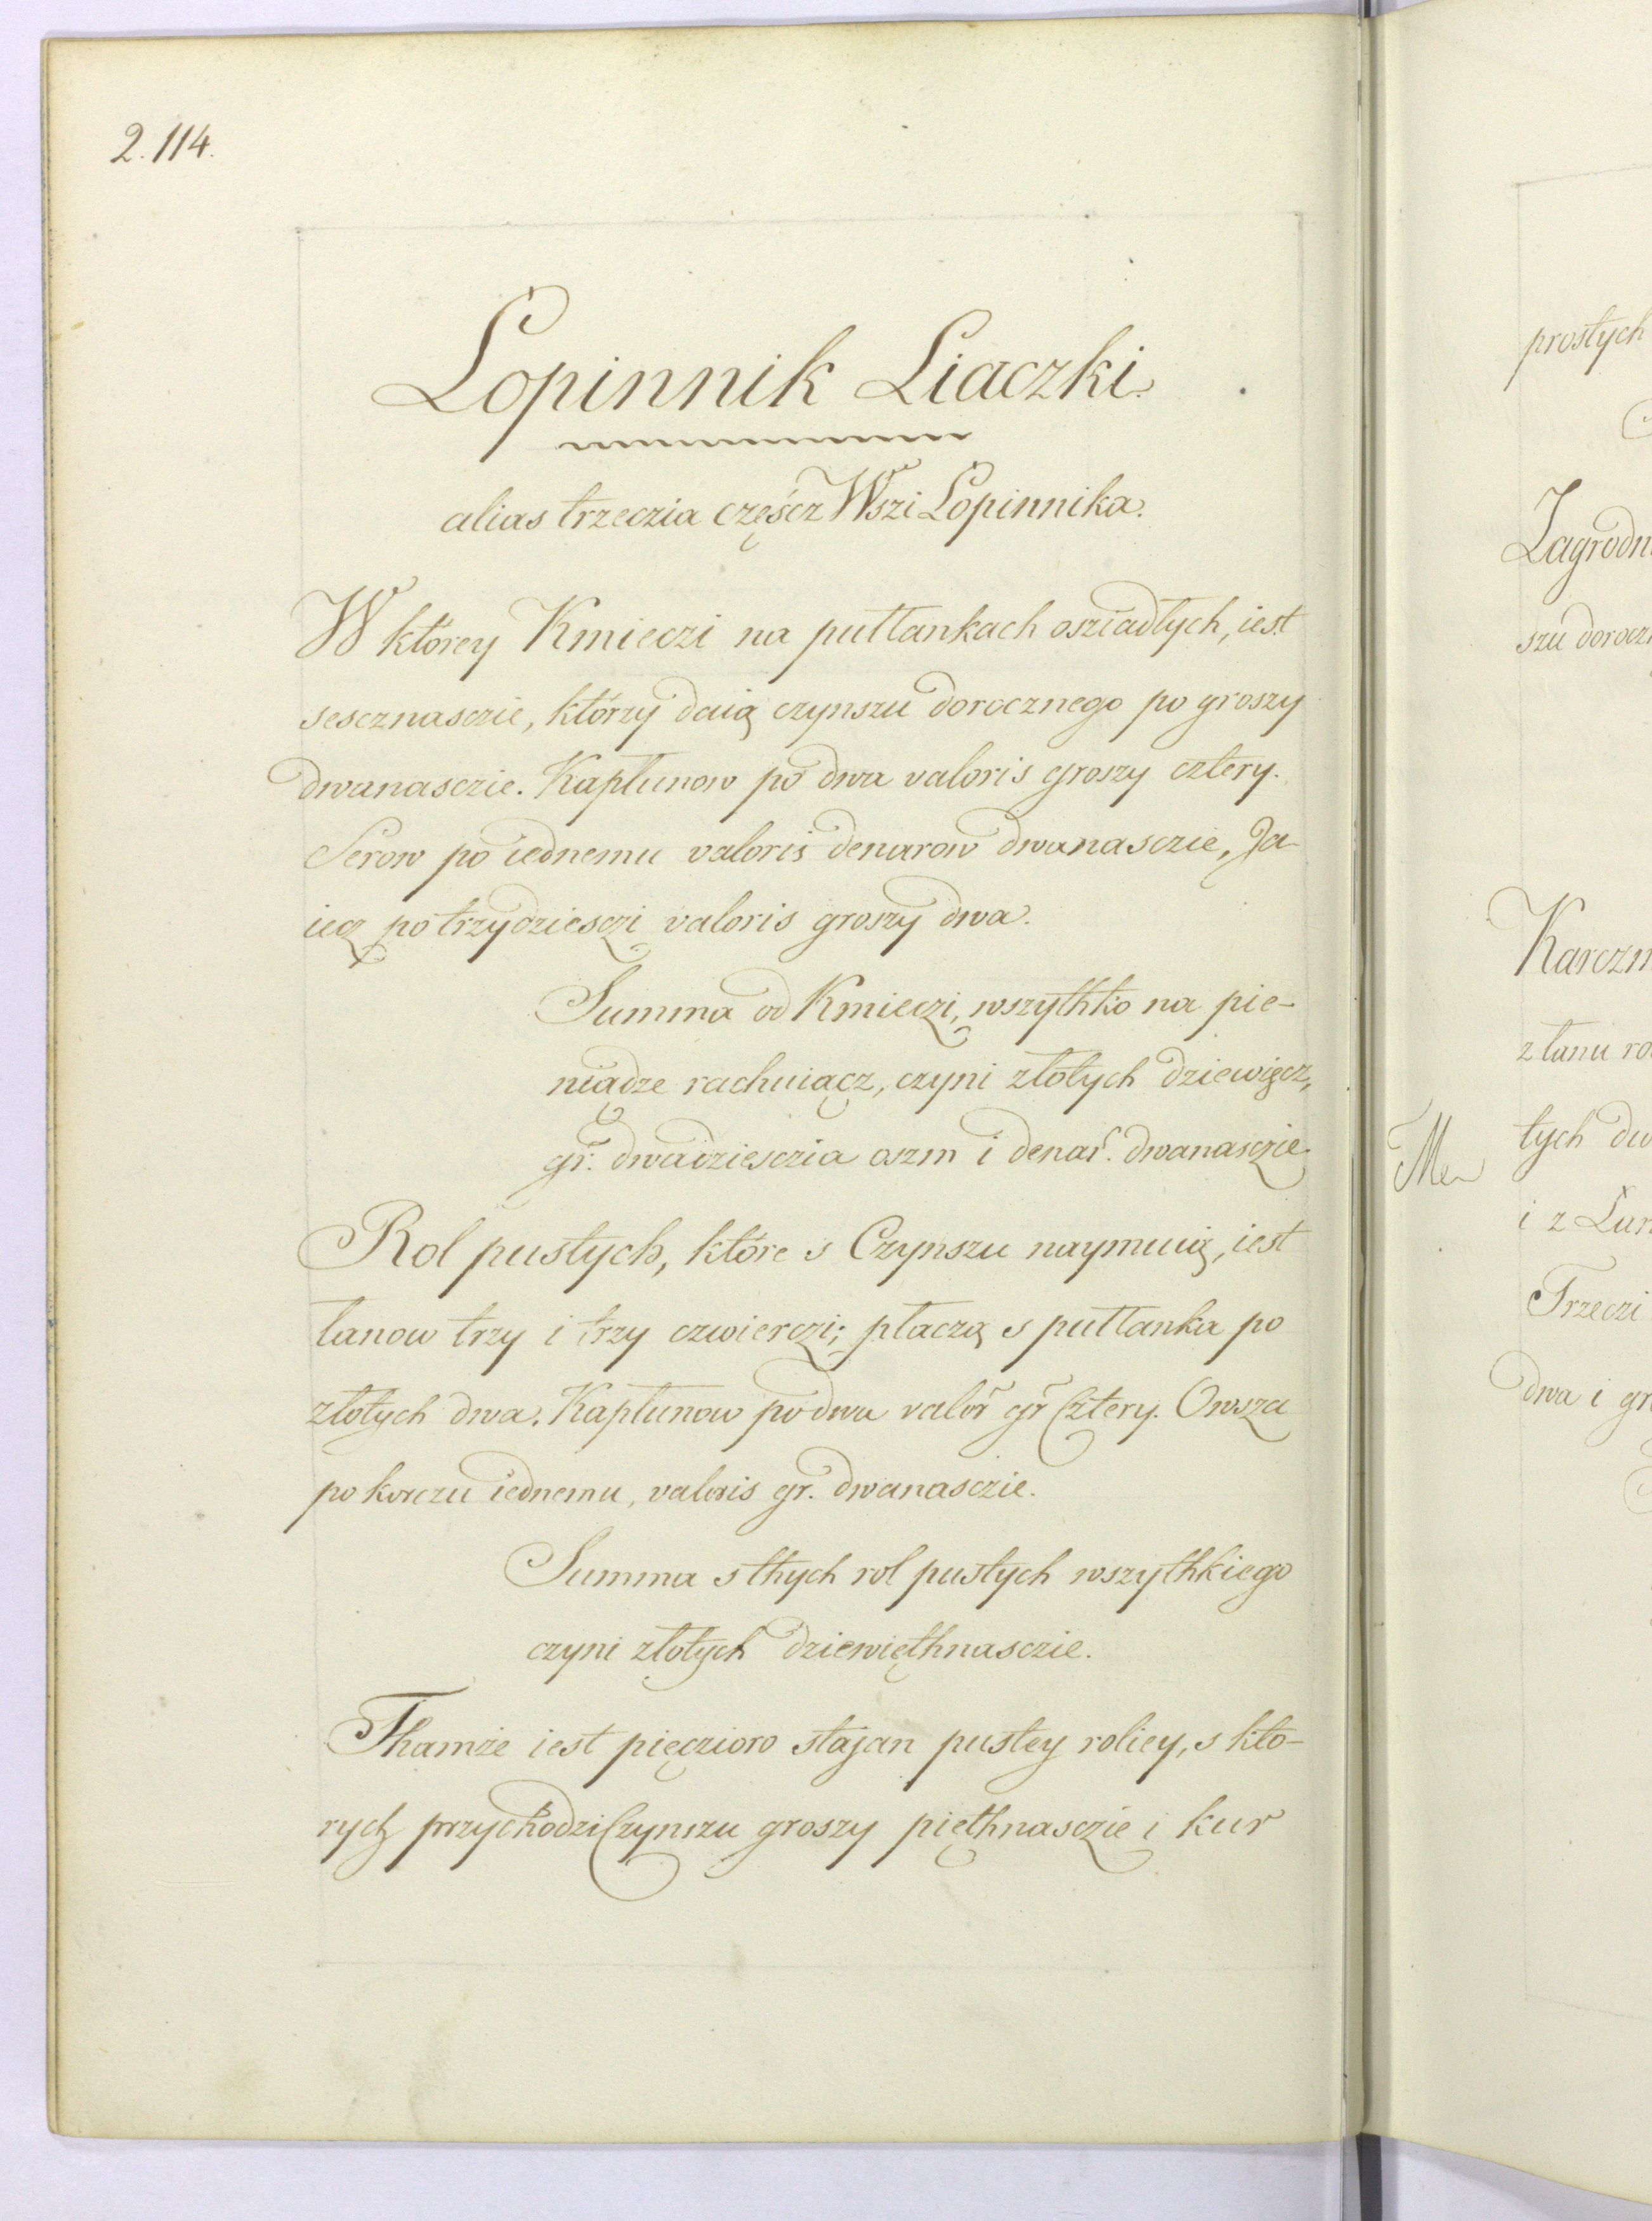 2.114.
Lopinnik Liaczki.
alias trzeczia częścz Wszi Lopinnika.
W którey Kmieczi na pułłankach osziadłych, iest
sescznasczie, którzy daią czynszu dorocznego po groszy
dwanasczie. Kapłunow po dwa valoris groszy cztery.
Serow po iednemu valoris denarow dwanasczie, Ja-
iecz po trzydziesczi valoris groszy dwa.
Summa od Kmieczi, wszythko na pie-
niądze rachuiącz, czyni złotych dziewięcz,
gr. dwadziesczia oszm i denar. dwanasczie
Rol pustych, które s Czynszu naymuią, iest
łanow trzy i trzy czwierczi; płaczą s pułłanka po
złotych dwa. Kapłunow po dwu valor gr Cztery. Owsza
po korczu iednemu, valoris gr. dwanasczie.
Summa s thych rol pustych wszythkiego
czyni złotych dziewięthnasczie.
Thamże iest pięczioro stajan pustey roliey, s kto-
rych przychodzi Czynszu groszy pięthnasczie i kur
prostych
Zagrodn
szu dorocz
Karczm
z łanu ro
tych dw
i z Lun
Trzeczi
dwa i gr